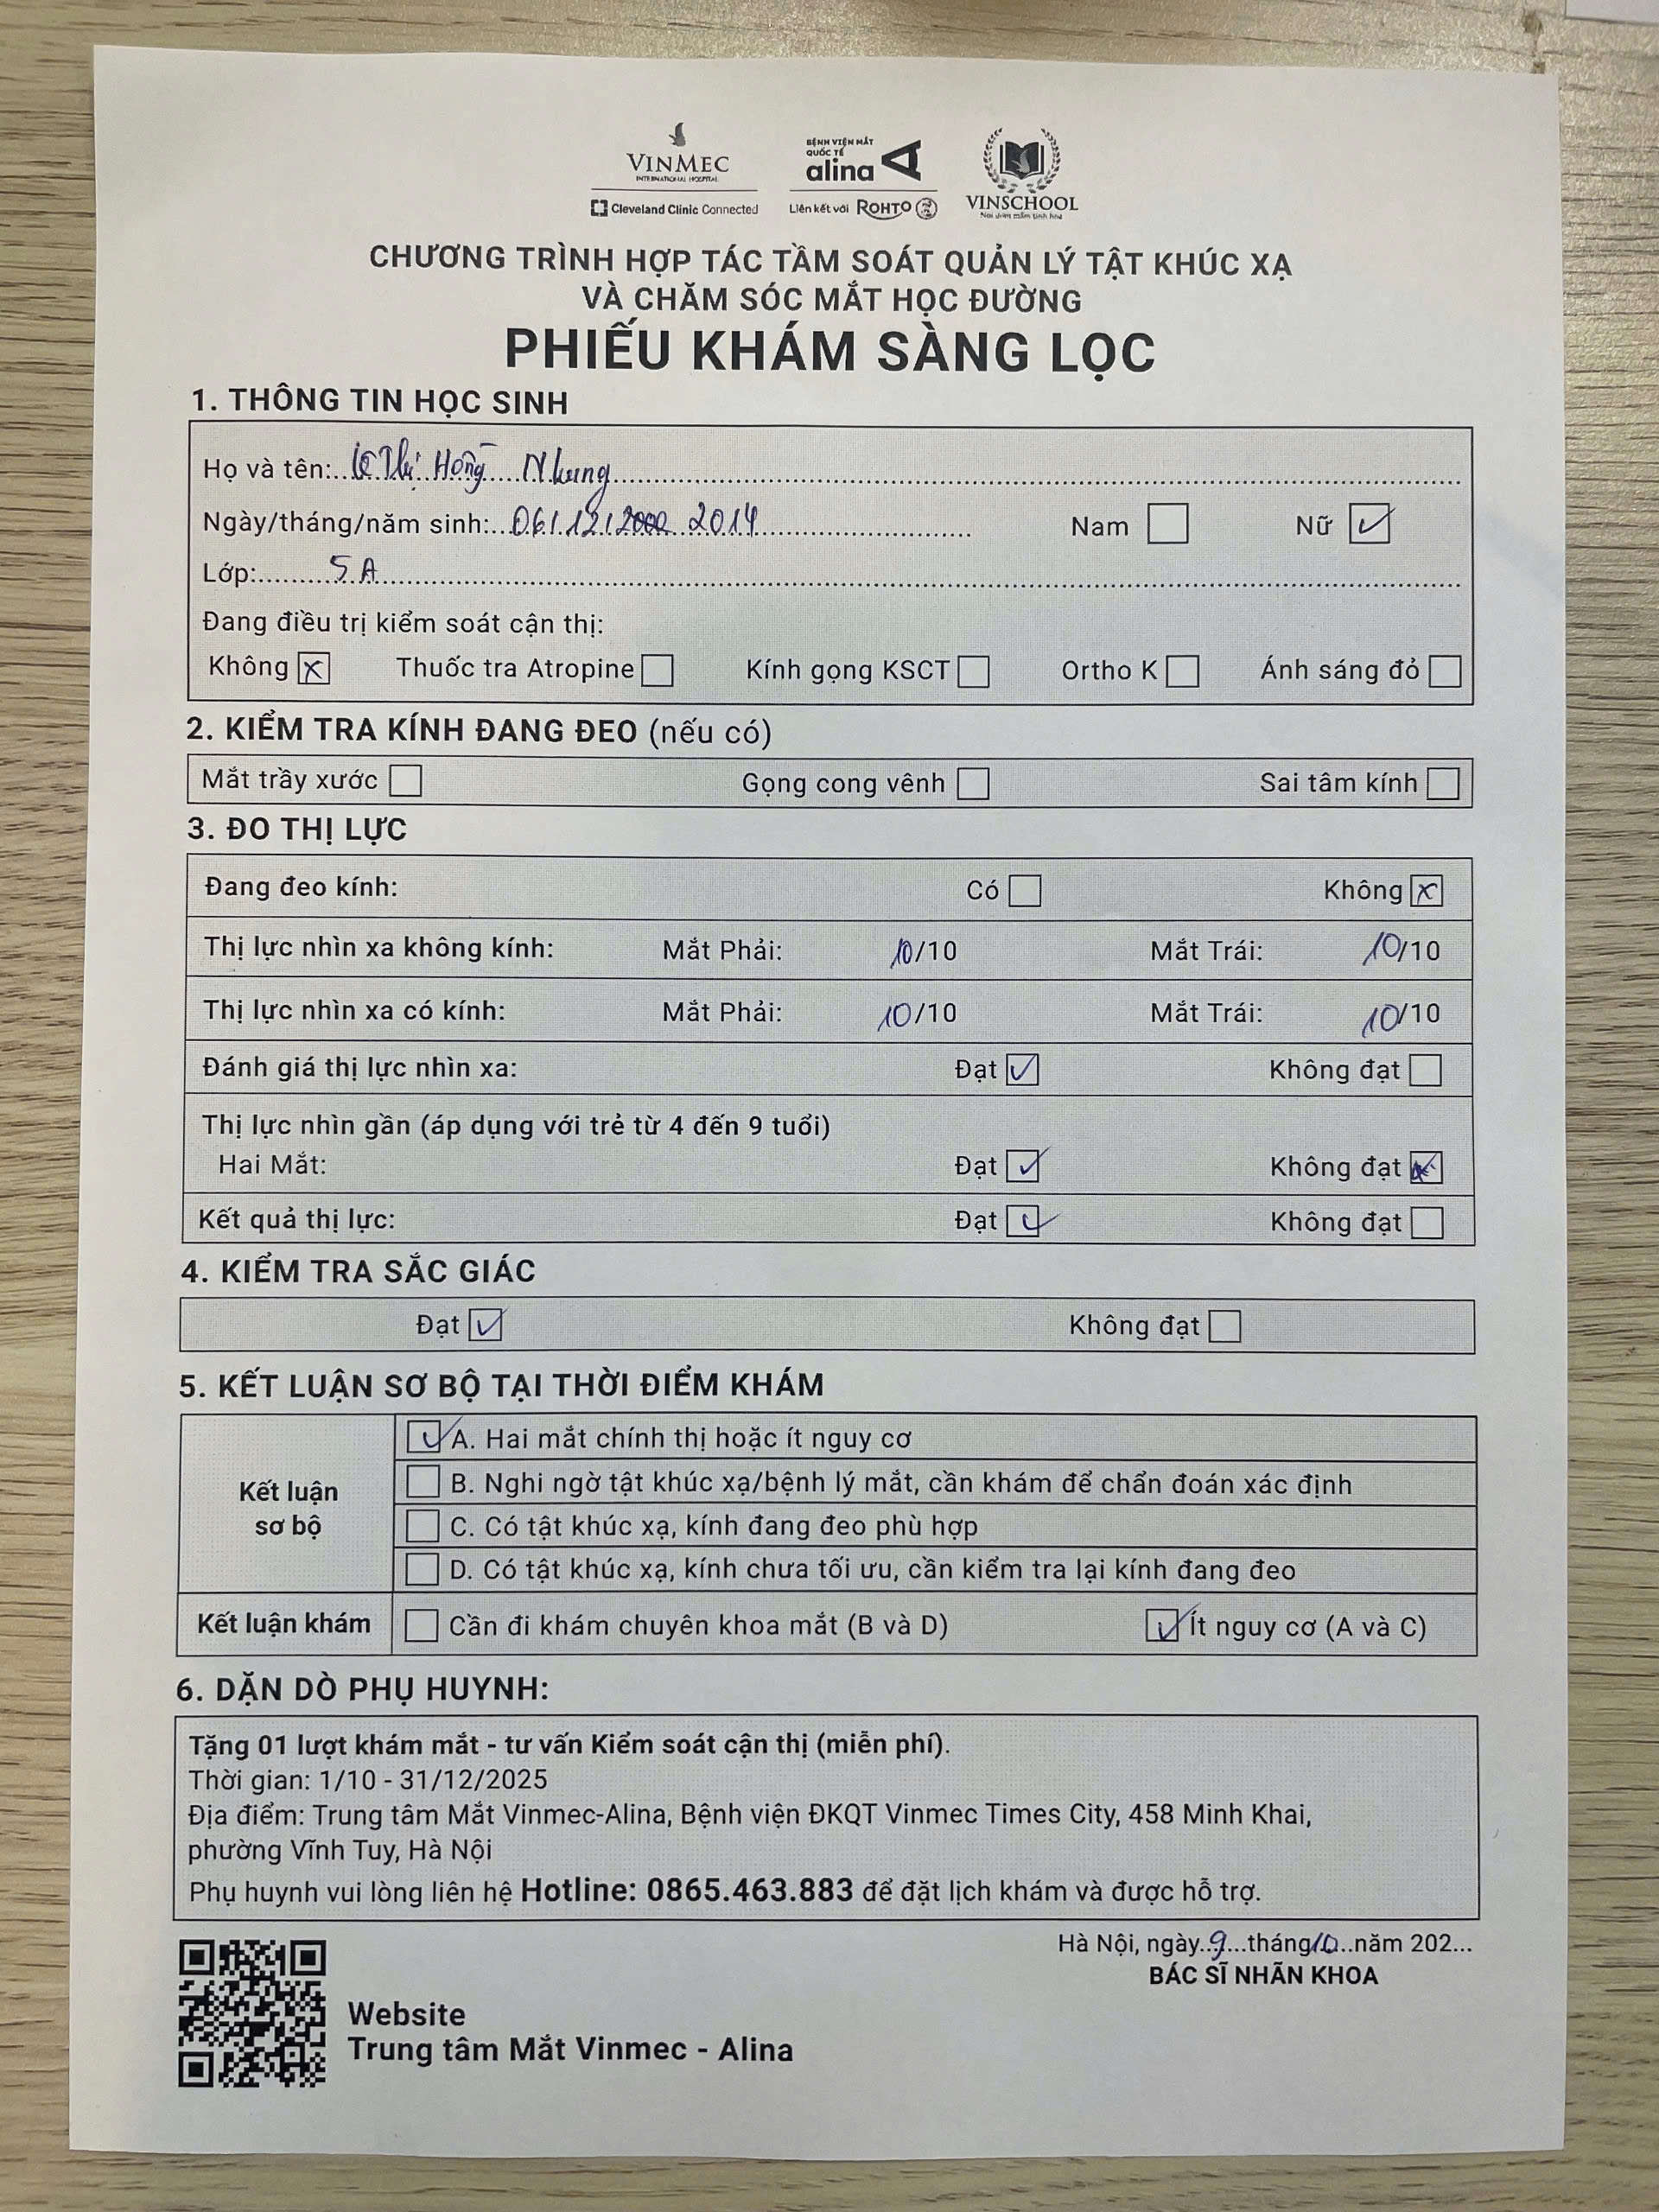 VINMEC
INTERNATIONAL HOSPITAL
Cleveland Clinic Connected
BỆNH VIỆN MẮT
QUỐC TẾ
alina
Liên kết với ROHTO
VINSCHOOL
Nơi ươm mầm tinh hoa
CHƯƠNG TRÌNH HỢP TÁC TẦM SOÁT QUẢN LÝ TẬT KHÚC XẠ
VÀ CHĂM SÓC MẮT HỌC ĐƯỜNG
PHIẾU KHÁM SÀNG LỌC
1. THÔNG TIN HỌC SINH
Họ và tên: Lê Thị Hồng Nhung
Ngày/tháng/năm sinh: 06/12/2000 2014 Nam Nữ ✓
Lớp: 5A
Đang điều trị kiểm soát cận thị:
Không x Thuốc tra Atropine Kính gọng KSCT Ortho K Ánh sáng đỏ
2. KIỂM TRA KÍNH ĐANG ĐEO (nếu có)
Mắt trầy xước Gọng cong vênh Sai tâm kính
3. ĐO THỊ LỰC
Đang đeo kính: Có Không x
Thị lực nhìn xa không kính: Mắt Phải: 10/10 Mắt Trái: 10/10
Thị lực nhìn xa có kính: Mắt Phải: 10/10 Mắt Trái: 10/10
Đánh giá thị lực nhìn xa: Đạt ✓ Không đạt
Thị lực nhìn gần (áp dụng với trẻ từ 4 đến 9 tuổi)
Hai Mắt: Đạt ✓ Không đạt x
Kết quả thị lực: Đạt ✓ Không đạt
4. KIỂM TRA SẮC GIÁC
Đạt ✓ Không đạt
5. KẾT LUẬN SƠ BỘ TẠI THỜI ĐIỂM KHÁM
Kết luận
sơ bộ
✓ A. Hai mắt chính thị hoặc ít nguy cơ
B. Nghi ngờ tật khúc xạ/bệnh lý mắt, cần khám để chẩn đoán xác định
C. Có tật khúc xạ, kính đang đeo phù hợp
D. Có tật khúc xạ, kính chưa tối ưu, cần kiểm tra lại kính đang đeo
Kết luận khám Cần đi khám chuyên khoa mắt (B và D) ✓ Ít nguy cơ (A và C)
6. DẶN DÒ PHỤ HUYNH:
Tặng 01 lượt khám mắt - tư vấn Kiểm soát cận thị (miễn phí).
Thời gian: 1/10 - 31/12/2025
Địa điểm: Trung tâm Mắt Vinmec-Alina, Bệnh viện ĐKQT Vinmec Times City, 458 Minh Khai,
phường Vĩnh Tuy, Hà Nội
Phụ huynh vui lòng liên hệ Hotline: 0865.463.883 để đặt lịch khám và được hỗ trợ.
Hà Nội, ngày 9 tháng 10 năm 202...
BÁC SĨ NHÃN KHOA
Website
Trung tâm Mắt Vinmec - Alina